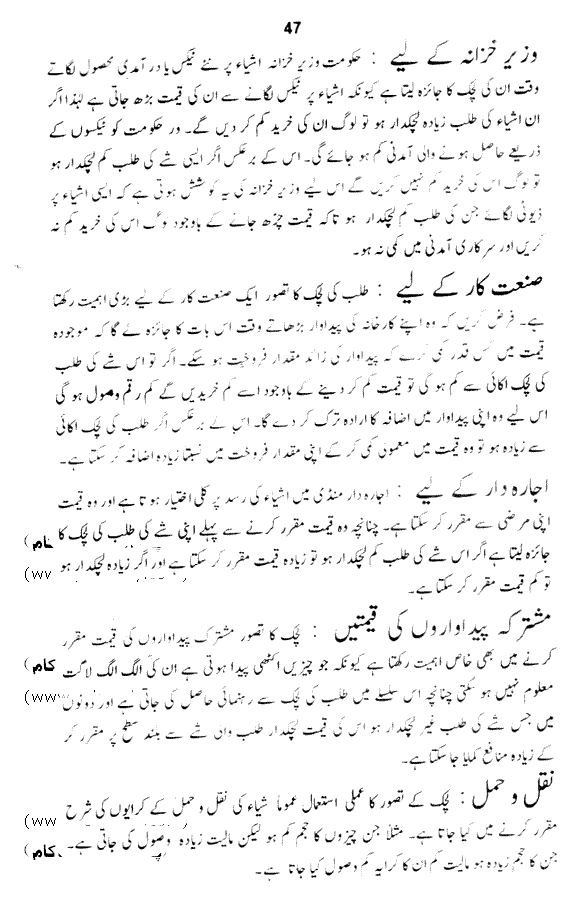 47
وزیر خزانہ کے لیے : حکومت وزیر خزانہ اشیاء پر نئے ٹیکس یا درآمدی محصول لگاتے
وقت ان کی لچک کا جائزہ لیتا ہے کیونکہ اشیاء پر ٹیکس لگانے سے ان کی قیمت بڑھ جاتی ہے لہٰذا اگر
ان اشیاء کی طلب زیادہ لچکدار ہو تو لوگ ان کی خرید کم کر دیں گے۔ ور حکومت کو ٹیکسوں کے
ذریعے حاصل ہونے والی آمدنی کم ہو جائے گی۔ اس کے برعکس اگر ایسی شے کی طلب کم لچکدار ہو
تو لوگ اس کی خرید کم نہیں کریں گے اس لیے وزیر خزانہ کی یہ کوشش ہوتی ہے کہ ایسی اشیاء پر
ڈیوٹی لگائے جن کی طلب کم لچکدار ہو تاکہ قیمت چڑھ جانے کے باوجود لوگ اس کی خرید کم نہ
کریں اور سرکاری آمدنی میں کمی نہ ہو۔
صنعت کار کے لیے : طلب کی لچک کا تصور ایک صنعت کار کے لیے بڑی اہمیت رکھتا
ہے۔ فرض کریں کہ وہ اپنے کارخانہ کی پیداوار بڑھاتے وقت اس بات کا جائزہ لے گا کہ موجودہ
قیمت میں کس قدر کمی کرے کہ پیداوار کی زائد مقدار فروخت ہو سکے۔ اگر تو اس شے کی طلب
کی لچک اکائی سے کم ہو گی تو قیمت کم کر دینے کے باوجود اسے کم خریدیں گے کم رقم وصول ہو گی
اس لیے وہ اپنی پیداوار میں اضافہ کا ارادہ ترک کر دے گا۔ اس کے برعکس اگر طلب کی لچک اکائی
سے زیادہ ہو تو وہ قیمت میں معمولی کمی کر کے اپنی مقدار فروخت میں نسبتاً زیادہ اضافہ کر سکتا ہے۔
اجارہ دار کے لیے : اجارہ دار منڈی میں اشیاء کی رسد پر کلی اختیار ہوتا ہے اور وہ قیمت
اپنی مرضی سے مقرر کر سکتا ہے۔ چنانچہ وہ قیمت مقرر کرنے سے پہلے اپنی شے کی طلب کی لچک کا
جائزہ لیتا ہے اگر اس شے کی طلب کم لچکدار ہو تو زیادہ قیمت مقرر کر سکتا ہے اور اگر زیادہ لچکدار ہو
تو کم قیمت مقرر کر سکتا ہے۔
مشترکہ پیداواروں کی قیمتیں : لچک کا تصور مشترک پیداواروں کی قیمت مقرر
کرنے میں بھی خاص اہمیت رکھتا ہے کیونکہ جو چیزیں اکٹھی پیدا ہوتی ہے ان کی الگ الگ لاگت
معلوم نہیں ہو سکتی چنانچہ اس سلسلے میں طلب کی لچک سے رہنمائی حاصل کی جاتی ہے اور دونوں
میں جس شے کی طلب غیر لچکدار ہو اس کی قیمت لچکدار طلب والی شے سے بلند سطح پر مقرر کر
کے زیادہ منافع کمایا جا سکتا ہے۔
نقل و حمل : لچک کے تصور کا عملی استعمال عموماً شیاء کی نقل و حمل کے کرایوں کی شرح
مقرر کرنے میں کیا جاتا ہے۔ مثلاً جن چیزوں کا حجم کم ہو لیکن مالیت زیادہ وصول کی جاتی ہے۔
جن کا حجم زیادہ ہو مالیت کم ان کا کرایہ کم وصول کیا جاتا ہے۔